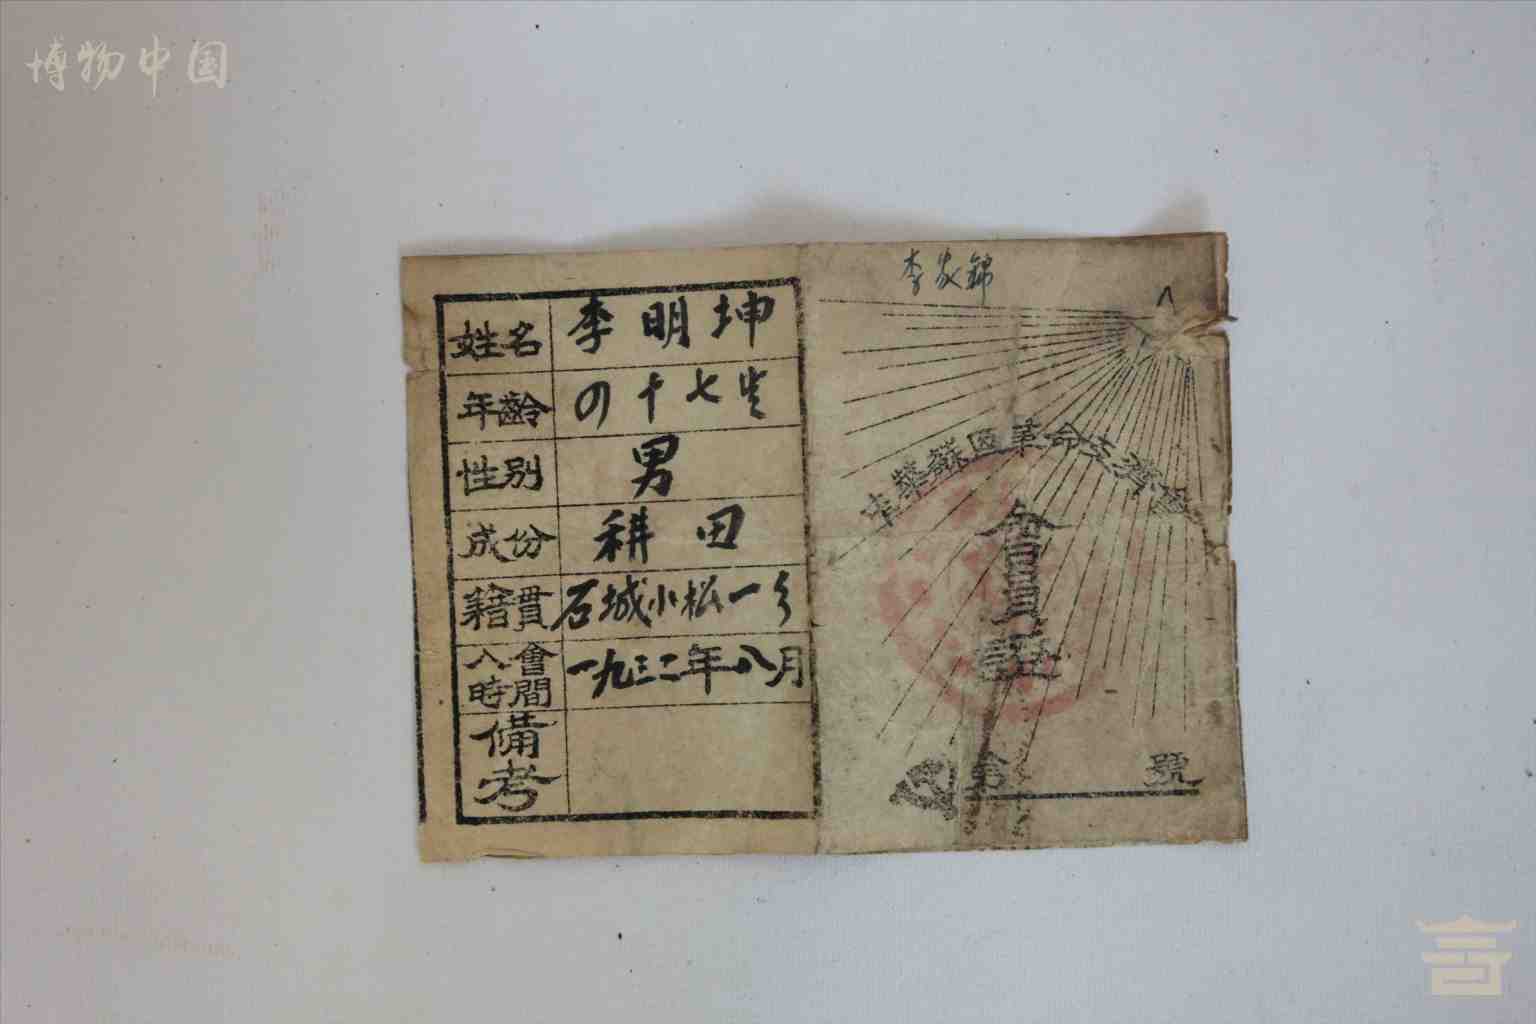 博物中国
李家錦
姓名 李明坤
年齡 四十七歲
性別 男
成份 耕田
籍貫 石城小松一乡
入會時間 一九三二年八月
備考
中華蘇區革命互濟會
會員証
第 號